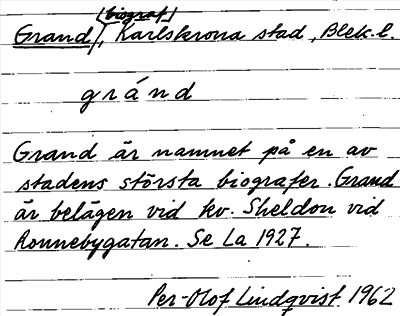 Grand (biograf), Karlskrona stad, Blek.l.
gránd
Grand är namnet på en av
stadens största biografer. Grand
är belägen vid kv. Sheldon vid
Ronnebygatan. Se La 1927.
Per-Olof Lindqvist 1962